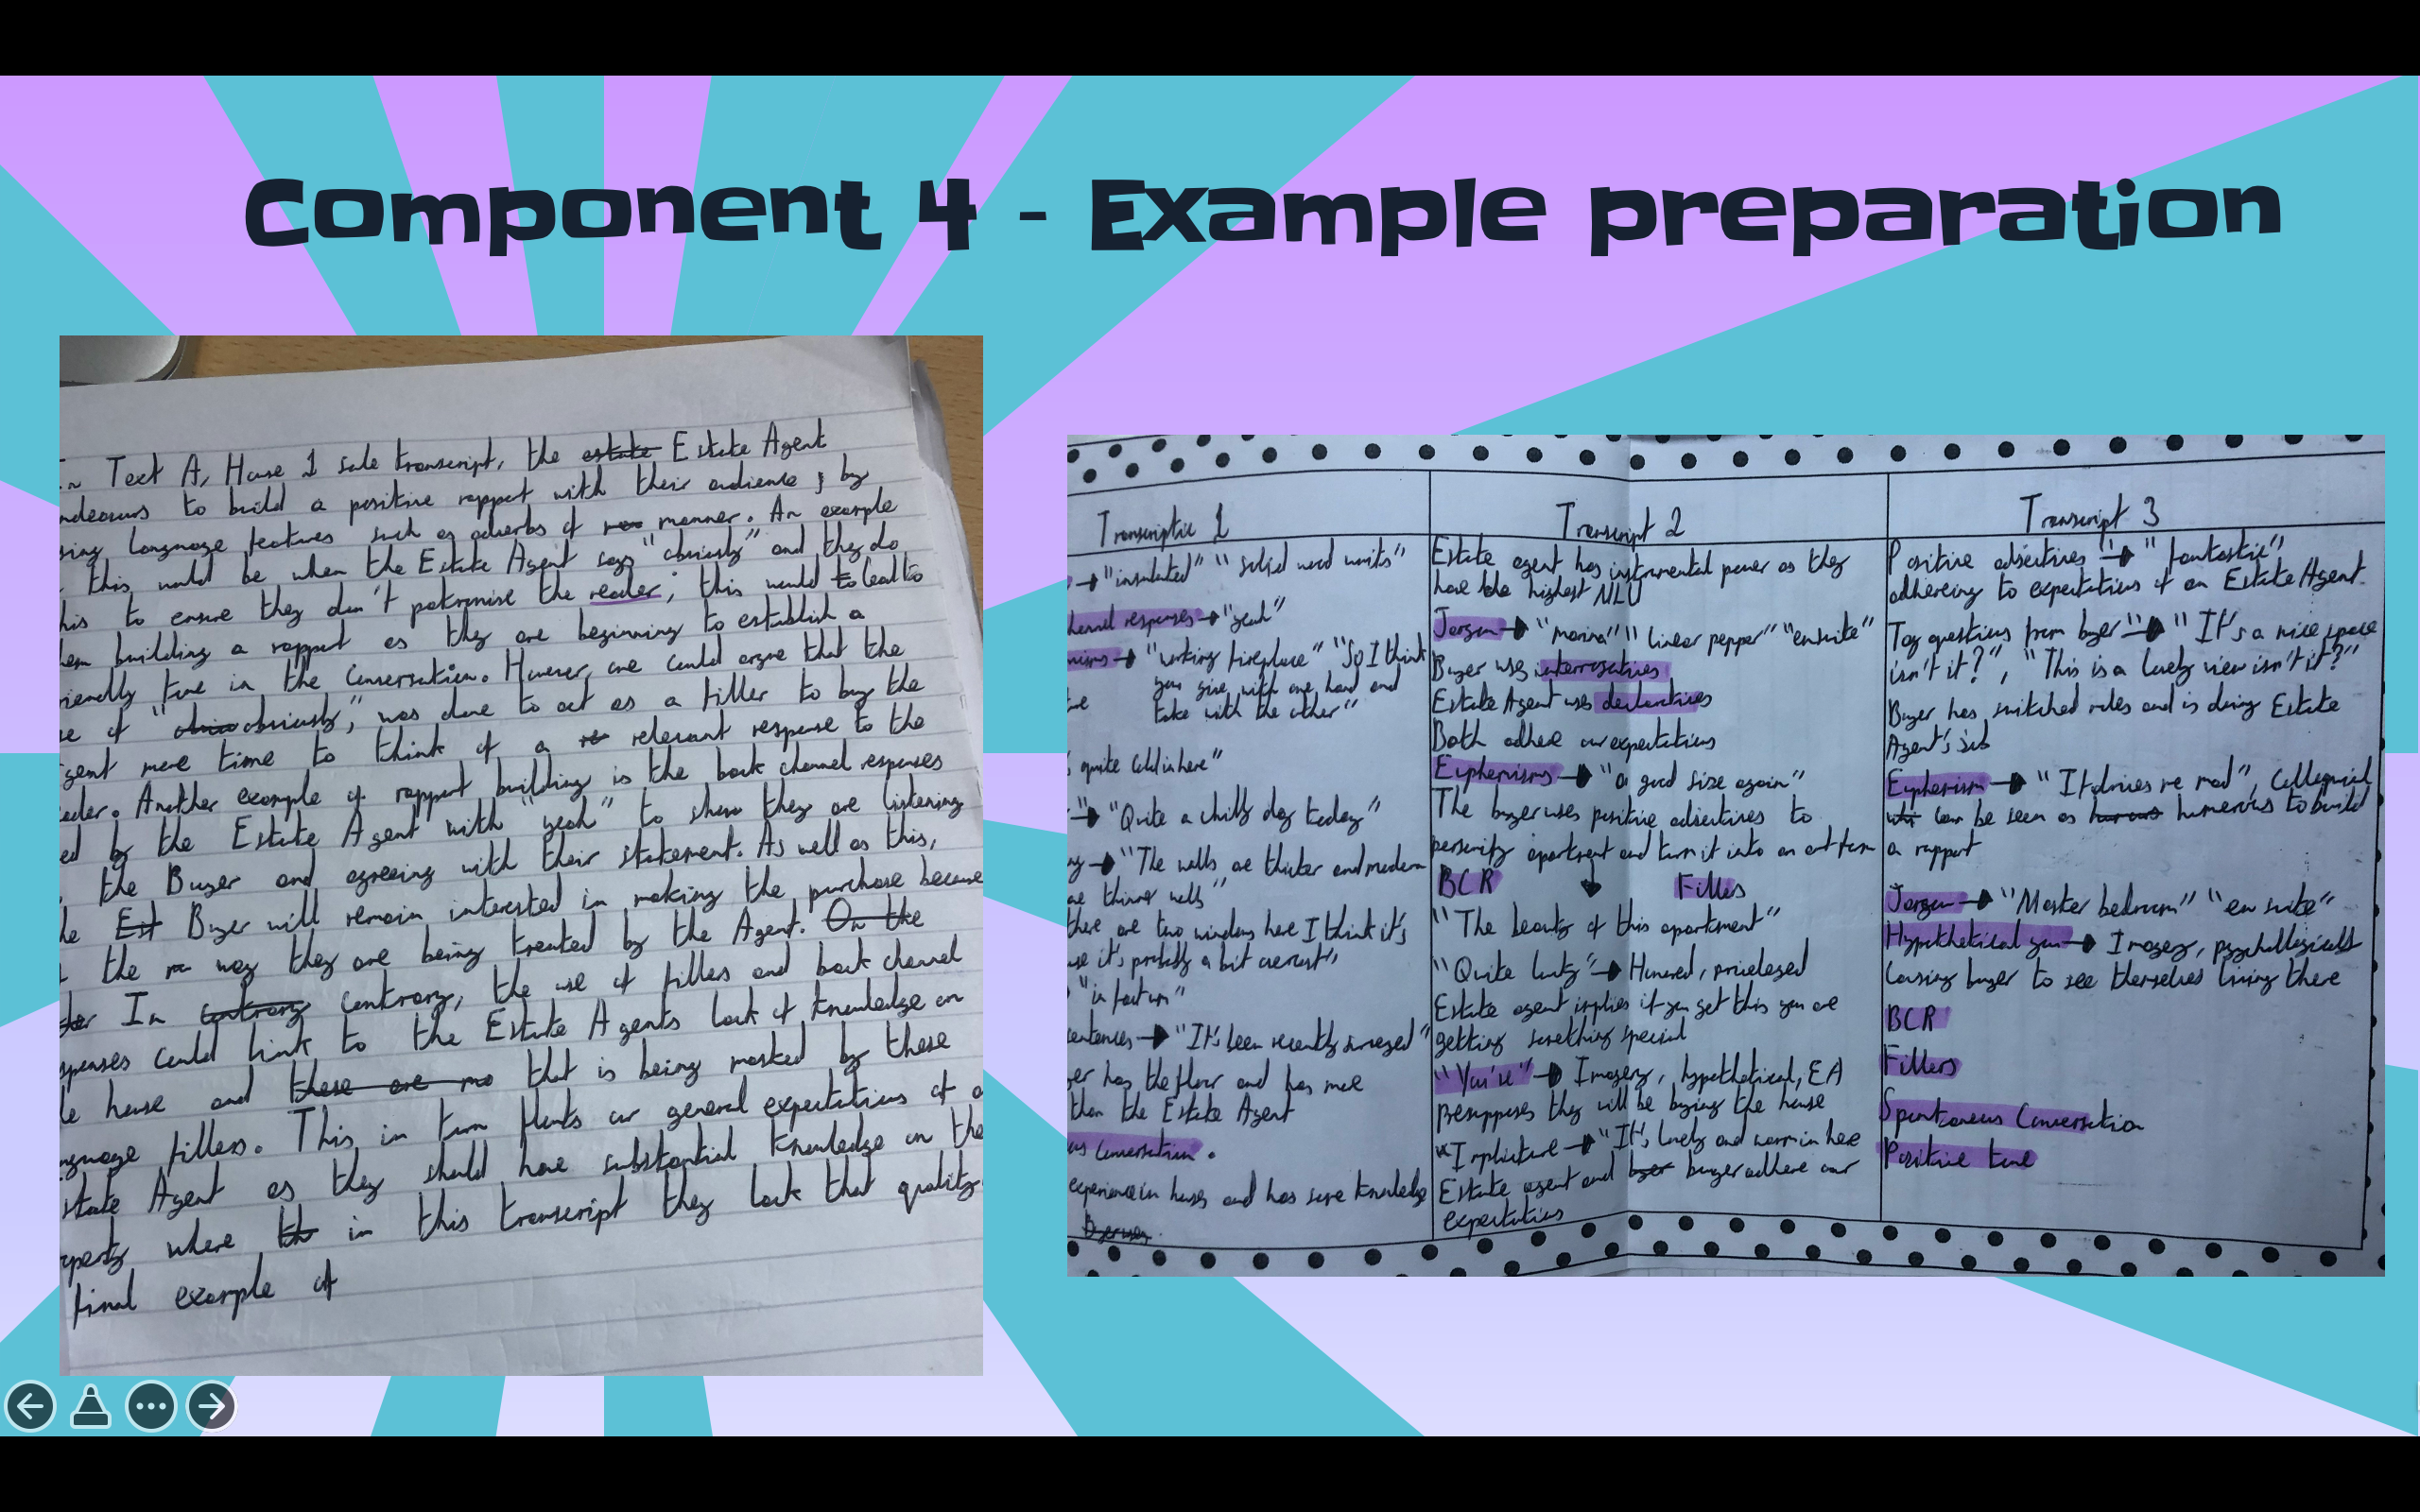 Component 4 - Example preparation
In Text A, House 1 sale transcript, the estate Estate Agent
ndeavours to build a positive rapport with their audience ; by
sing language features such as adverbs of manner. An example
this would be when the Estate Agent says "obviously" and they do
his to ensure they don't patronise the reader; this would to lead to
hem building a rapport as they are beginning to establish a
riendly tone in the conversation. However, one could argue that the
se of "obviously", was done to act as a filler to buy the
gent more time to think of a relevant response to the
eader. Another example of rapport building is the back channel responses
ed by the Estate Agent with "yeah" to show they are listening
the Buyer and agreeing with their statement. As well as this,
he Est Buyer will remain interested in making the purchase because
the way they are being treated by the Agent. On the
In contrary contrary, the use of fillers and back channel
sponses could link to the Estate Agents lack of knowledge on
e house and these are that is being masked by these
nguage fillers. This in turn flouts our general expectations of a
state Agent as they should have substantial knowledge on the
operty where in this transcript they lack that quality.
final example of
Transcriptic 1
→ "insulated" "solid wood units"
hannel responses → "yeah"
misms → "working fireplace" "So I think
you give with one hand and
take with the other"
quite cold in here"
" → "Quite a chilly day today"
ng → "The walls are thicker and modern
are thinner walls"
there are two windows here I think it's
use it's probably a bit
"in fact um"
sentences → "It's been recently surveyed"
er has the floor and has more
than the Estate Agent
us Conversation.
experience in houses and has some knowledge
Buyer uses
Transcript 2
Estate agent has instrumental power as they
have the highest MLU
Jargon → "marina" "linear pepper" "ensuite"
Buyer uses interrogatives
Estate Agent uses declaratives
Both adhere our expectations
Euphemisms → "a good size again"
The buyer uses positive adjectives to
personify apartment and turn it into an art form
BCR Fillers
"The beauty of this apartment"
"Quite lucky" → Honored, priveleged
Estate agent implies if you get this you are
getting something special
"You're" → Imagery, hypothetical, EA
presupposes they will be buying the house
Implicture → "It's lovely and warm in here
Estate agent and buyer buyer adhere our
expectations
Transcript 3
Positive adjectives → "fantastic"
adhereing to expectations of an Estate Agent
Tag questions from buyer → "It's a nice space
isn't it?", "This is a lovely view isn't it?"
Buyer has switched roles and is doing Estate
Agent's job
Euphemism → "It drives me mad", Colloquial
can be seen as humorous to build
a rapport
Jargon → "Master bedroom" "en suite"
Hypothetical you → Imagery, psychollogically
causing buyer to see themselves living there
BCR
Fillers
Spontaneous Conversation
Positive tone